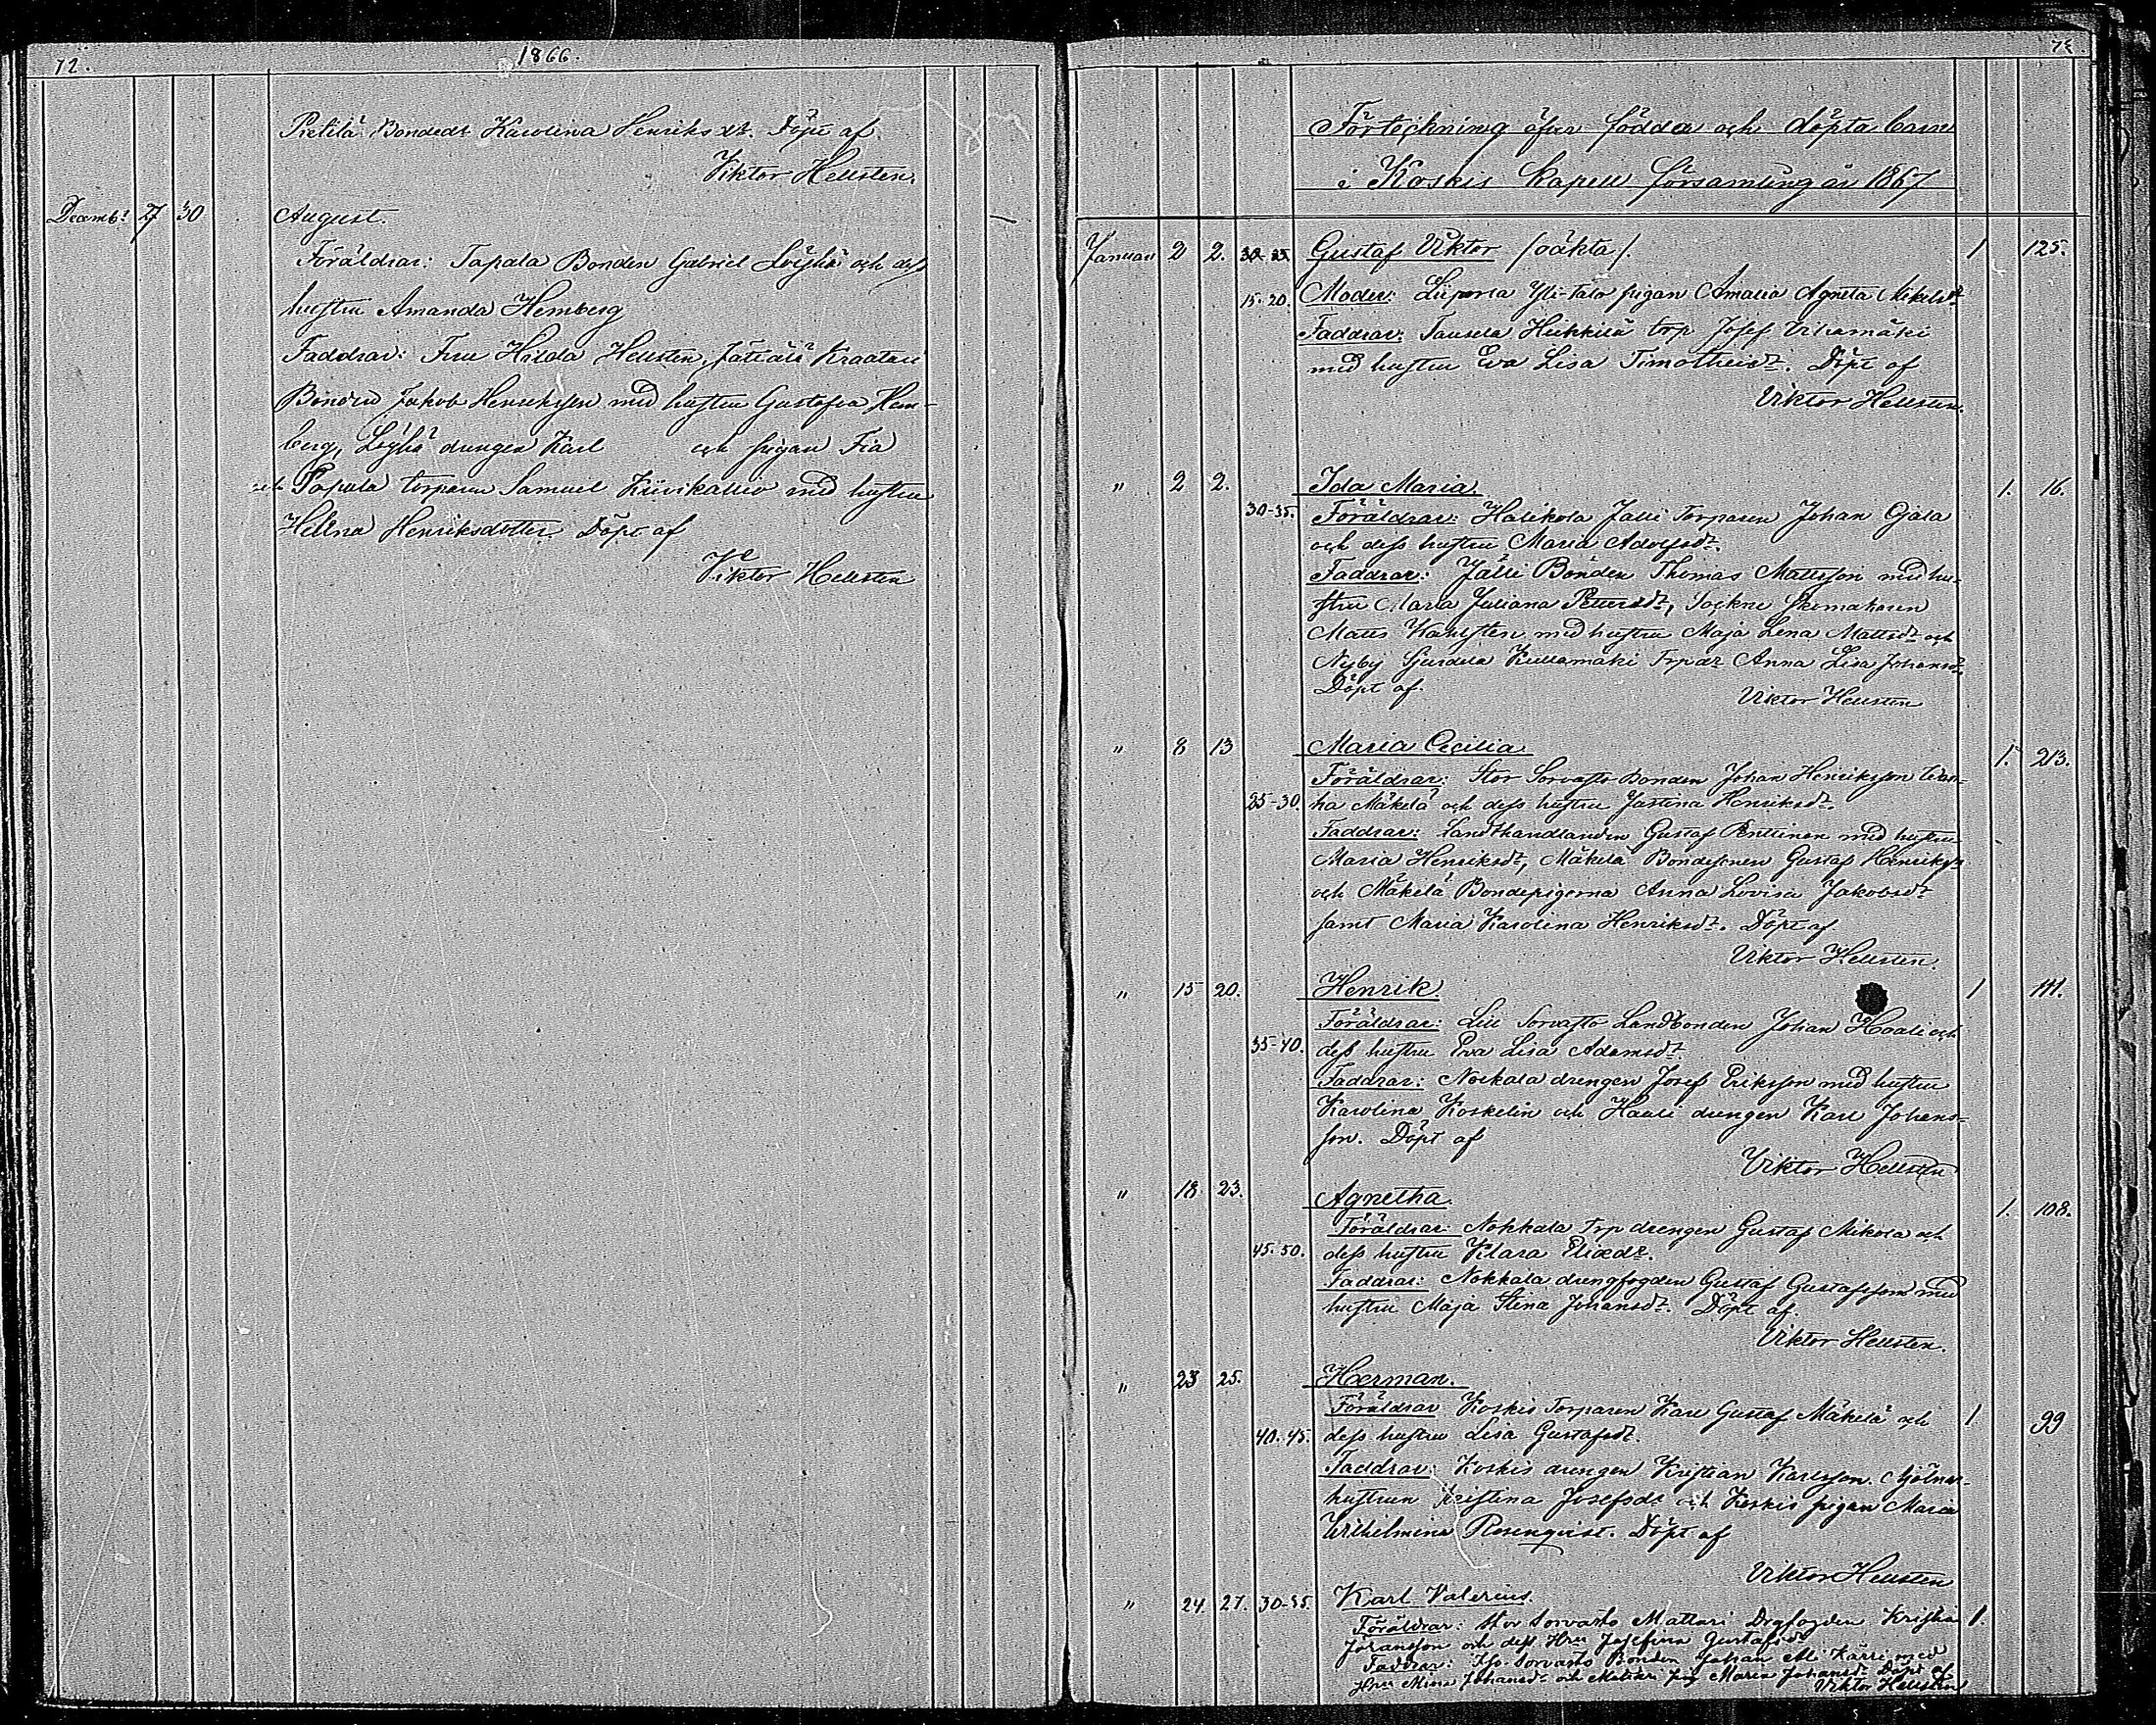 72.
1866.
Pietilä Bondedr Karolina Henriksdr. Döpt af
Viktor Hellsten.
Decembr 27 30
August.
Föräldrar: Tapala Bonden Gabriel Löyhä och dess
hustru Amanda Hemberg
Faddrar: Fru Hilda Hellsten, Kraatari
Bonden Jakob Henriksson med hustru Gustafva Hem-
berg, Löyhä drengen Karl och pigan Fia
och Tapala torparen Samuel Kiivikallio med hustru
Helena Henriksdotter. Döpt af
Viktor Hellsten
Förteckning öfver födda och döpta barn
i Koskis Kapell församling år 1867
Januari 2 2. Gustaf Viktor /oäkta/. 1 125.
15-20. Moder: Liipola Yli-Talo pigan Amalia Agneta Mikelsdr
Faddrar: Tausela Heikkilä torp Josef
med hustru Eva Lisa Timotheidr. Döpt af
Viktor Hellsten.
" 2 2. Ida Maria 1. 16.
30-35. Föräldrar: Halikola Jalli Torparen Johan Ojala
och dess hustru Maria Adolfsdr.
Faddrar: Jalli Bonden Thomas Mattsson med hu-
stru Maria Juliana Pettersdr, Sockne Skomakaren
Matts Karlsten med hustru Maja Lena Mattsdr och
Nyby Sjurdela Kullamäki Trpdr Anna Lisa Johansdr.
Döpt af
Viktor Hellsten
" 8 13 Maria Cecilia 1. 213.
Föräldrar: Stor Sorvasto Bonden Johan Henriksson Wan-
25-30. ha Mäkelä och dess hustru Justina Henriksdr.
Faddrar: Landthandlanden Gustaf Penttinen med hustru
Maria Henriksdr, Mäkelä Bondesonen Gustaf Henriksson
och Mäkelä Bondepigorna Anna Lovisa Jakobsdr
samt Maria Karolina Henriksdr. Döpt af
Viktor Hellsten.
" 15 20. Henrik 1 111.
Föräldrar: Lill Sorvasto Landbonden Johan Haali och
35-40. dess hustru Eva Lisa Adamsdr.
Faddrar: Nokkala drengen Josef Eriksson med hustru
Karolina Koskelin och Haali drengen Karl Johans-
son. Döpt af
Viktor Hellsten
" 18 23. Agnetha. 1. 108.
Föräldrar: Nokkala trp drengen Gustaf Mikola och
45-50. dess hustru Klara Eliædr.
Faddrar: Nokkala drengfogden Gustaf Gustafsson med
hustru Maja Stina Johansdr. Döpt af.
Viktor Hellsten.
" 23 25. Herman.
Föräldrar Koskis Torparen Karl Gustaf Mäkelä och 1 99
40-45. dess hustru Lisa Gustafsdr.
Faddrar: Koskis drengen Kristian Karlsson. Mjölnar-
hustrun Kristina Josefsdr och Koskis pigan Maria
Wilhelmina Rosenqvist. Döpt af
Viktor Hellsten
" 24. 27. 30-35. Karl Valerius.
Föräldrar: Stor Sorvasto Mattari Drgfogden Kristian 1.
Johansson och dess Hru Josefina Gustafsdr
Faddrar: Sorvasto Bonden Johan Ali Kärri med
Hru Mina Johansdr och Mattari pig Maria Johansdr. Döpt af
Viktor Hellsten